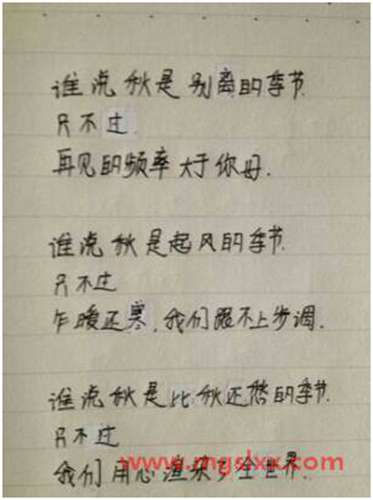 谁说秋是别离的季节
只不过.
再见的频率大于你好.
谁说秋是起风的季节.
只不过
乍暖还寒,我们跟不上步调.
谁说秋是比秋还的季节.
只不过
我们用心渲染了全世界.
www.mgslxx.com